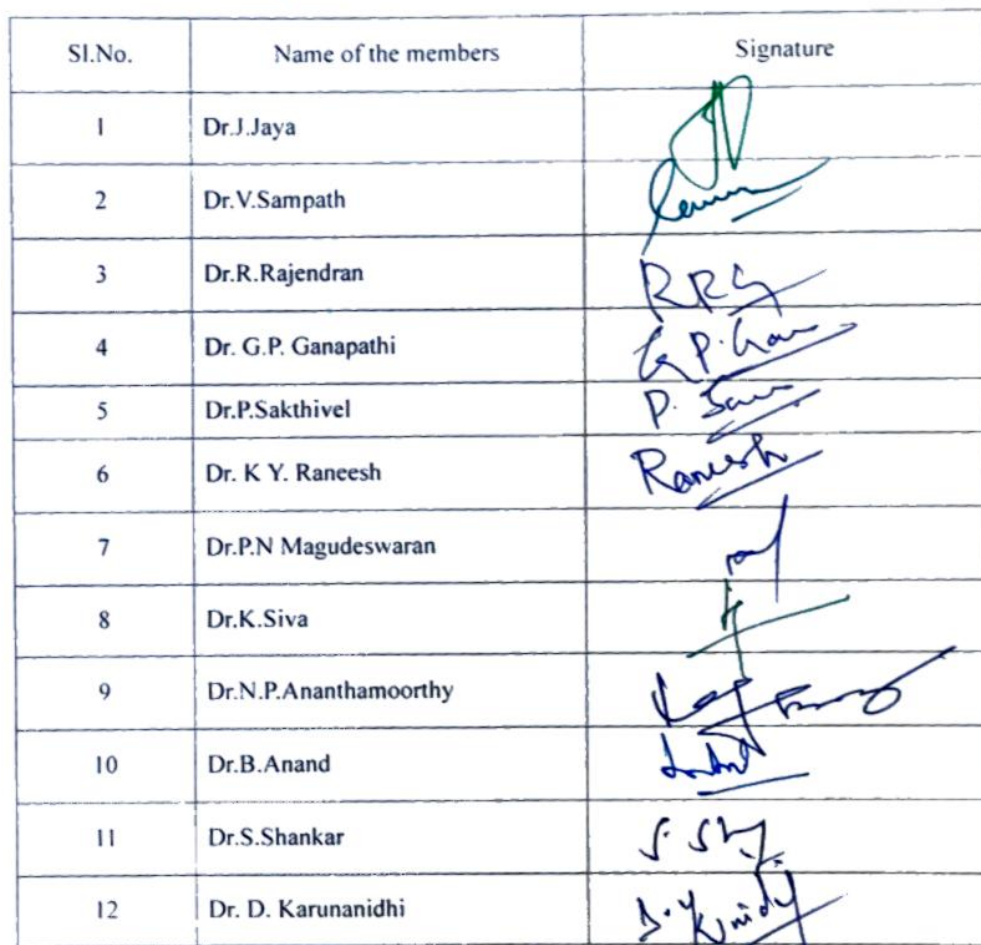 Sl.No. Name of the members Signature
1 Dr.J.Jaya
2 Dr.V.Sampath
3 Dr.R.Rajendran
4 Dr. G.P. Ganapathi G P. Gan
5 Dr.P.Sakthivel P.
6 Dr. K Y. Raneesh Raneesh
7 Dr.P.N Magudeswaran
8 Dr.K.Siva
9 Dr.N.P.Ananthamoorthy
10 Dr.B.Anand
11 Dr.S.Shankar
12 Dr. D. Karunanidhi